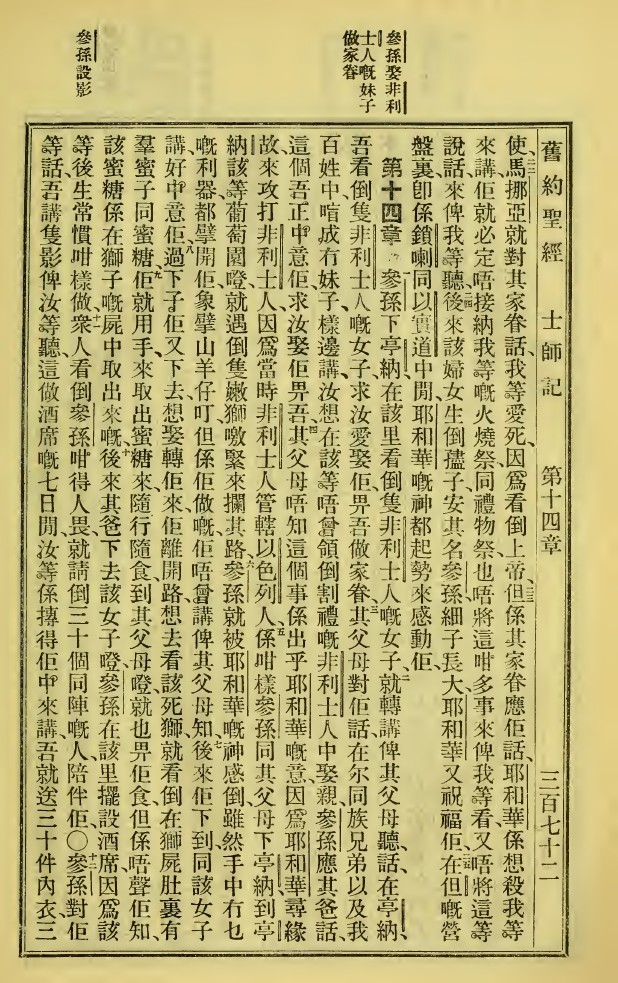 舊約聖經 士師記 第十四章 三百七十二
參孫娶非利
士人嘅妹子
做家眷
參孫設影
使、二二馬挪亞就對其家眷話、我等愛死、因爲看倒上帝、二三但係其家眷應佢話、耶和華係想殺我等
來講、佢就必定唔接納我等嘅火燒祭、同禮物祭、也唔將這咁多事來俾我等看、又唔將這等
說話來俾我等聽、二四後來該婦女生倒孻子、安其名參孫、細子長大、耶和華又祝福佢、二五在但嘅營
盤裏、卽係鎖喇同以實道中閒、耶和華嘅神都起勢來感動佢、
第十四章 一參孫下亭納、在該里看倒隻非利士人嘅女子、二就轉講俾其父母聽、話、在亭納、
吾看倒隻非利士人嘅女子、求汝愛娶佢畀吾做家眷、三其父母對佢話、在尔同族兄弟以及我
百姓中、喑成冇妹子、樣邊講汝想在該等唔曾領倒割禮嘅非利士人中娶親、參孫應其爸話、
這個吾正中意佢、求汝娶佢畀吾、四其父母唔知這個事係出乎耶和華嘅意、因爲耶和華尋緣
故來攻打非利士人、因爲當時非利士人管轄以色列人、五係咁樣參孫同其父母下亭納、到亭
納該等葡萄園嶝、就遇倒隻嫩獅、噭緊來攔其路、六參孫就被耶和華嘅神感倒、雖然手中冇乜
嘅利器、都擘開佢、象擘山羊仔叮、但係佢做嘅、佢唔曾講俾其父母知、七後來佢下到同該女子
講好、中意佢、八過下子佢又下去想娶轉佢來、佢離開路想去看該死獅、就看倒在獅屍肚裏有
羣蜜子同蜜糖、九佢就用手來取出蜜糖來、隨行隨食、到其父母嶝、就也畀佢食、但係唔聲佢知
該蜜糖係在獅子嘅屍中取出來嘅、十後來其爸下去該女子嶝、參孫在該里擺設酒席、因爲該
等後生常慣咁樣做、十一衆人看倒參孫咁得人畏、就請倒三十個同陣嘅人陪伴佢、〇十二參孫對佢
等話、吾講隻影俾汝等聽、這做酒席嘅七日閒、汝等係摶得佢中來講、吾就送三十件內衣、三